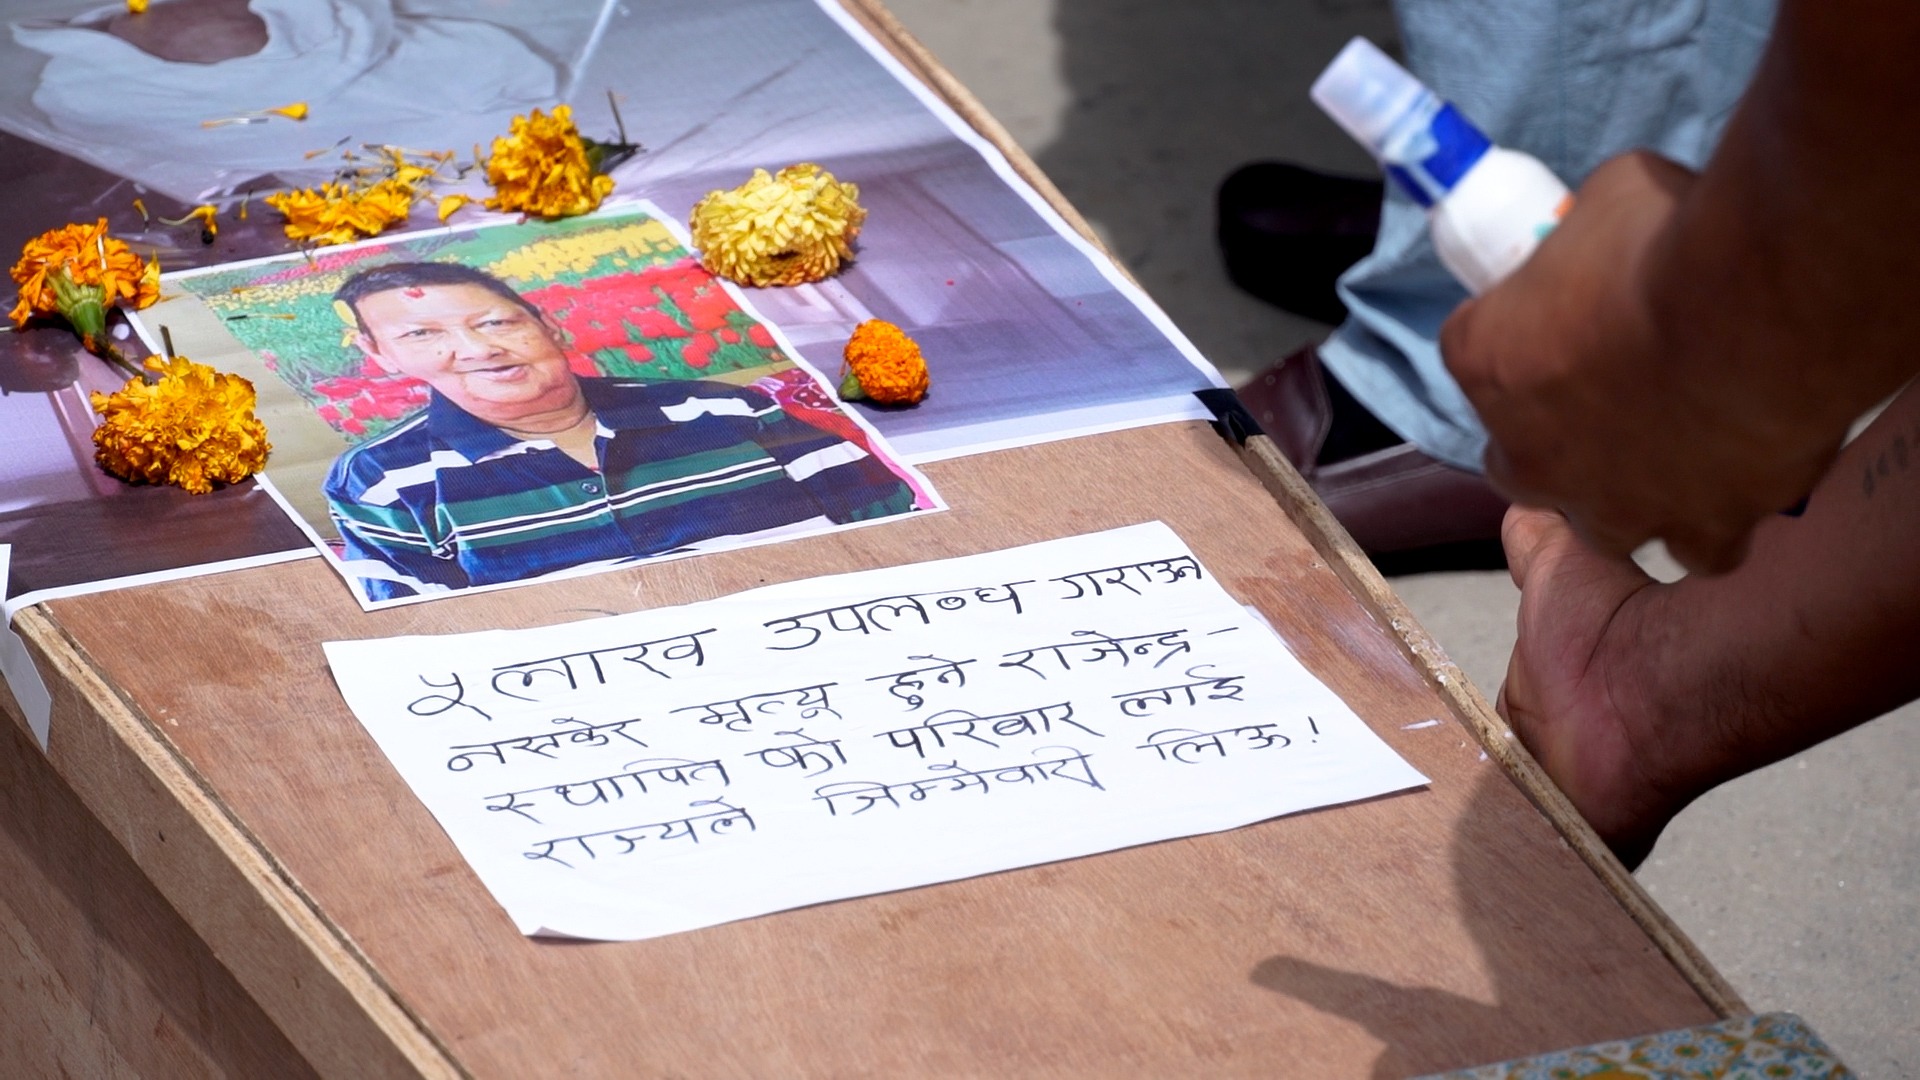 ५ लाख उपलब्ध गराउन
नसकेर मृत्यू हुने राजेन्द्र -
स्थापित को परिवार लाई
राज्यले जिम्मेवारी लिऊ!